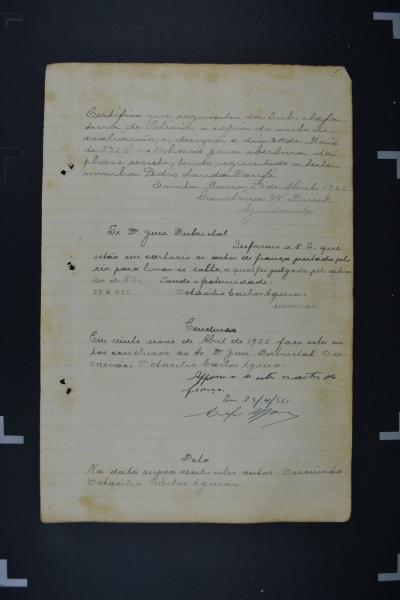 Certifico que requisitei da Sub-chefa
tura de Policia a copia do auto de
avaliação e, designei o dia 20 de Maio
de 1925 as 14 horas para abertura da
phase secreta, tendo requisitado a teste
munha Pedro
Santa Maria, 29 de Abril 1925
Carolina W.
Ajudante
Sr. Dr. Juiz Districtal
Informo a V. S. que
estão em cartorio os autos de fiança prestada pelo
réo para livrar-se solto, a qual foi julgada pelo
de V. S. Saude e fraternidade.
29.4.925 Octacilio Carlos Aguiar
escrivão
Conclusão
Em vinte nove de Abril de 1925 faço estes au
tos conclusos ao Sr. Dr. Juiz Districtal. O es
crivão, Octacilio Carlos Aguiar
a estes os autos de
fiança.
Em 29/4/925
Data
Na data supra recebi estes autos. O escrivão,
Octacilio Carlos Aguiar